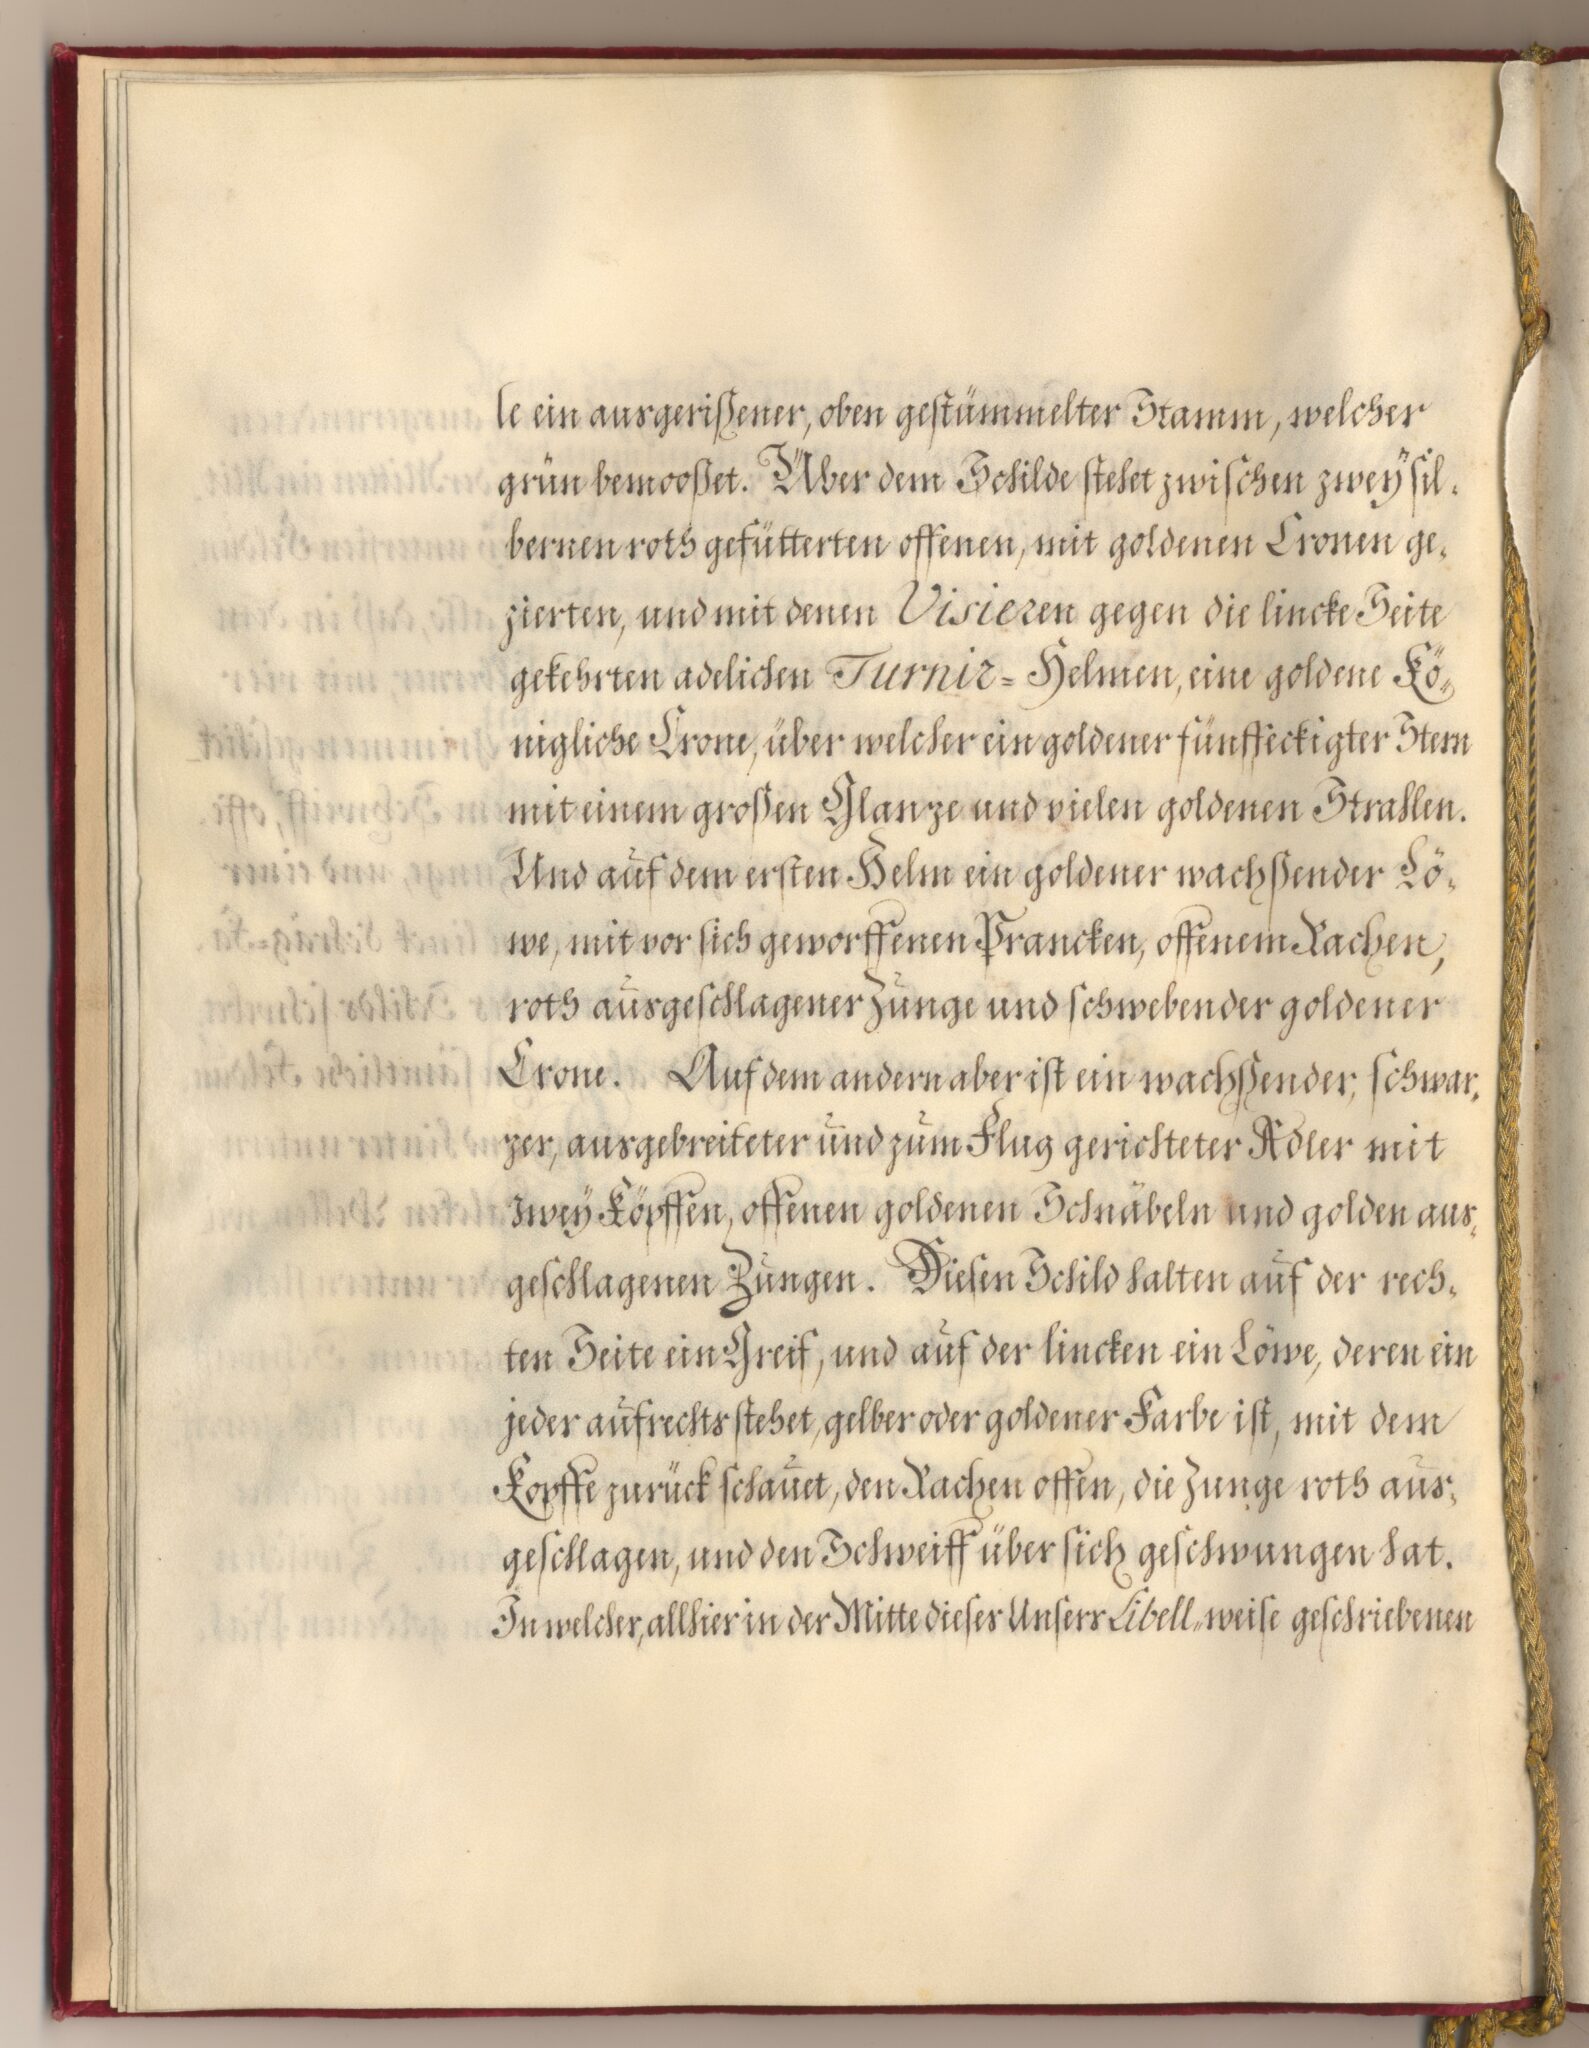 le ein ausgerißener, oben gestümmelter Stamm, welcher
grün bemooßet. Über dem Schilde stehet zwischen zweÿ sil-
bernen roth gefütterten offenen, mit goldenen Cronen ge-
zierten, und mit denen Visieren gegen die lincke Seite
gekehrten adelichen Turnir= Helmen, eine goldene Kö-
nigliche Crone, über welcher ein goldener fünffeckigter Stern
mit einem großen Glanze und vielen goldenen Strahlen.
Und auf dem ersten Helm ein goldener wachßender Lö-
we, mit vor sich geworffenen Prancken, offenem Rachen,
roth ausgeschlagener Zunge und schwebender goldener
Crone. Auf dem andern aber ist ein wachßender, schwar-
zer, ausgebreiteter und zum Flug gerichteter Adler mit
zweÿ Köpffen, offenen goldenen Schnäbeln und golden aus-
geschlagenen Zungen. Diesen Schild halten auf der rech-
ten Seite ein Greif, und auf der lincken ein Löwe, deren ein
jeder aufrechts stehet, gelber oder goldener Farbe ist, mit dem
Kopffe zurück schauet, den Rachen offen, die Zunge roth aus-
geschlagen, und den Schweiff über sich geschwungen hat.
In welcher, allhier in der Mitte dieser Unsers Libell-weise geschriebenen